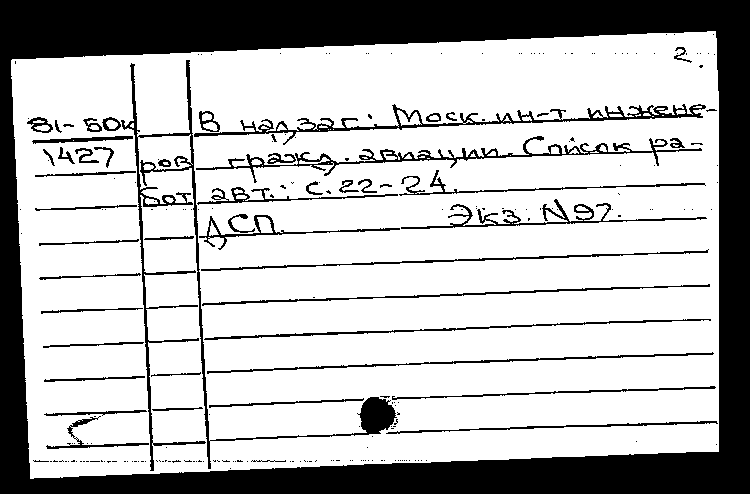 2.
81-50к В надзаг.: Моск. ин-т инжене-
1427 ров гражд. авиации. Список ра-
бот авт.: с. 22-24.
ДСП. Экз. N97.